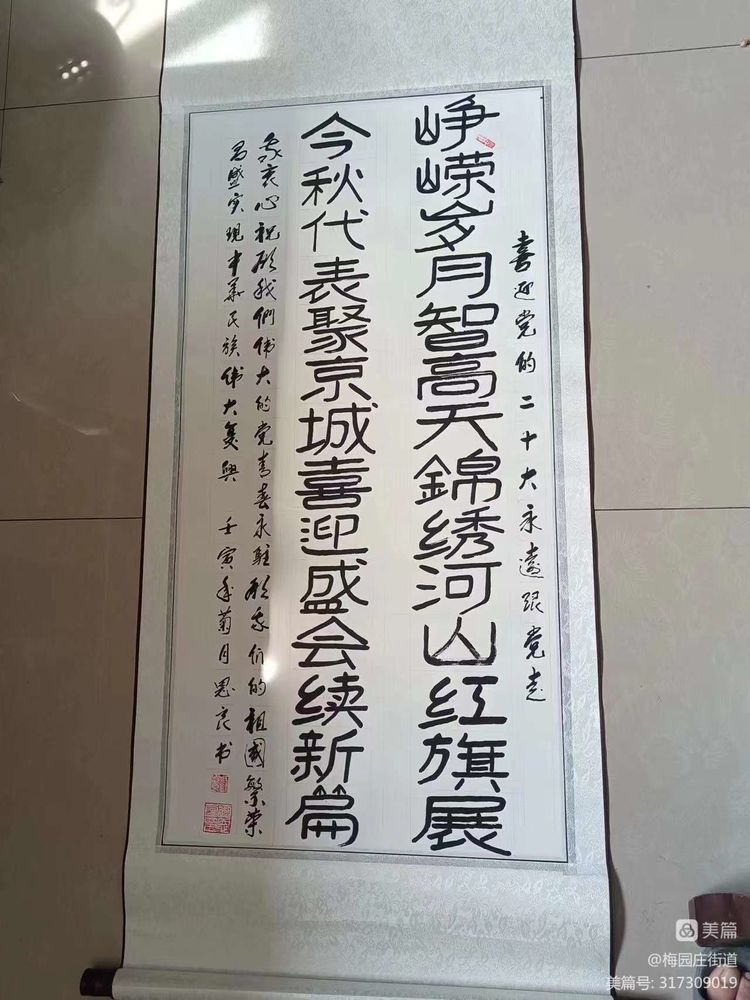 喜迎党的二十大永遠跟党走
峥嵘岁月智高天錦绣河山红旗展
今秋代表聚京城喜迎盛会续新篇
我衷心祝愿我們伟大的党青春永駐愿我们的祖國繁荣
昌盛实現中華民族伟大复興 壬寅年菊月 良书
美篇
@梅园庄街道
美篇号: 317309019